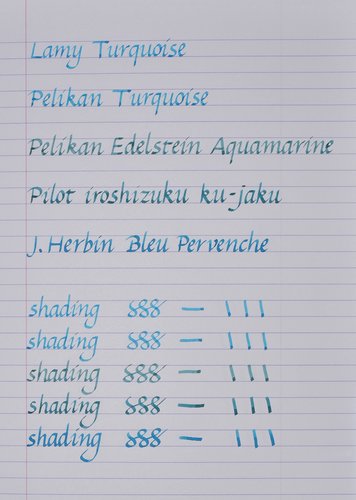 Lamy Turquoise
Pelikan Turquoise
Pelikan Edelstein Aquamarine
Pilot iroshizuku ku-jaku
J. Herbin Bleu Pervenche
shading 888 — | | |
shading 888 — | | |
shading 888 — | | |
shading 888 — | | |
shading 888 — | | |